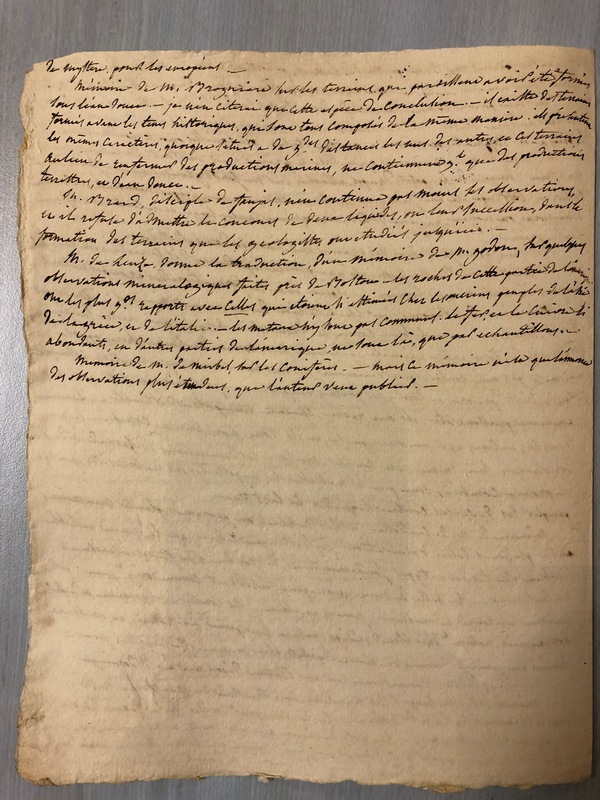 de mystère pour les européens —
Mémoire de M. Brogniart sur les terrains qui paraissent avoir été formés
sous l'eau douce. — je n'en citerai que cette espèce de conclusion. — il existe des terrains
formés avant les tems historiques, qui sont tous composés de la même manière. ils présentent
les mêmes caractères, quoique situés a de gdes distances les uns des autres, et ces terrains
au lieu de renfermer des productions marines, ne contiennent que des productions
terrestres, et d'eau douce. —
M. Brard, disciple de faujas, n'en continue pas moins ses observations,
et il refuse d'admettre le concours de deux liquides, ou leur succession, dans la
formation des terrains que les geologistes ont étudiés jusqu'ici. —
M. de donne la traduction, d'un mémoire de M. godon, sur quelques
observations mineralogiques faites près de Boston — les roches de cette partie de
ont les plus gds rapports avec celles qui etoient si estimées chez les anciens peuples de
de la grèce, et de l'italie. — les metaux n'y sont pas communs. le fer, et le si
abondants, en d'autres parties de l'amerique, ne sont là, que par echantillons. —
Memoire de M. de mirbel sur les conifères. — mais ce mémoire n'est que l'annonce
des observations plus étendues, que l'auteur veut publier. —